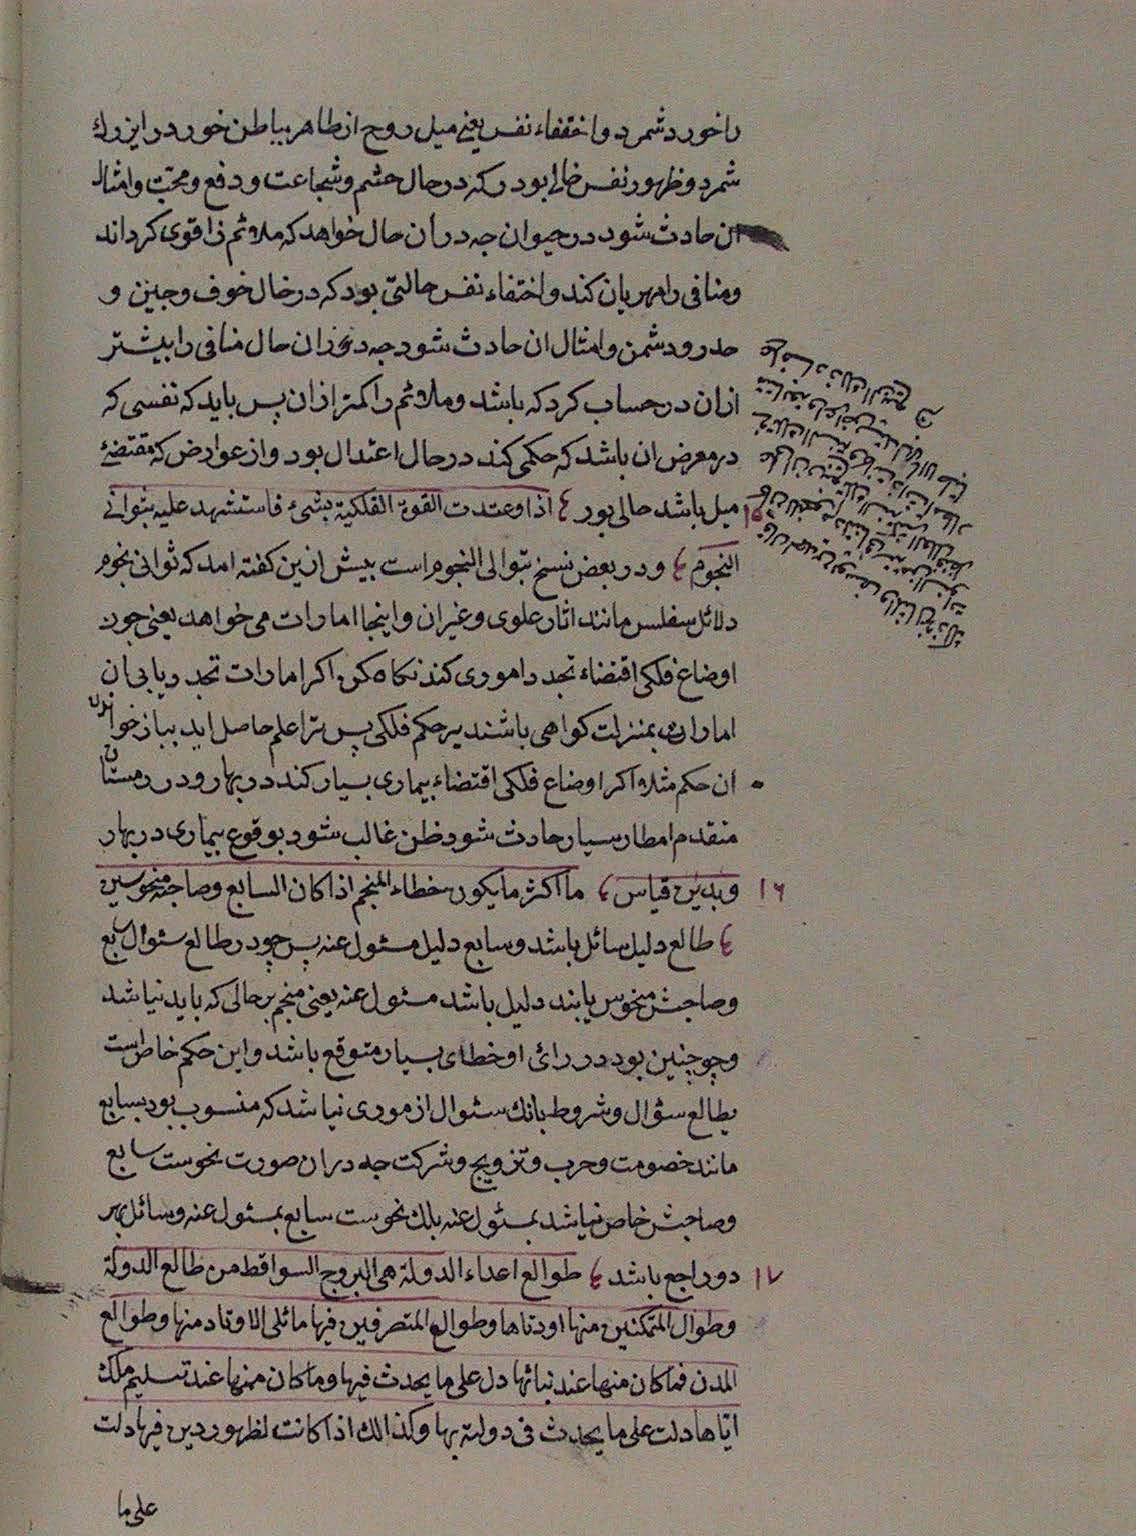 را خورد شمرد و اختفاء نفس یعنی میل روح از ظاهر بباطن خود در ایزرك
شمرد و ظهور نفس خالی بود که در حال خشم و شجاعت و دفع و محبت و امثال
ان حادث شود در حیوان جه در ان حال خواهد که ملائم را قوی کرداند
و منافی را مهربان کند و اختفاء نفس حالتی بود که در حال خوف و جبن و
حدر و دشمن و امثال ان حادث شود جه در ان حال منافی را بیشتر
از ان در حساب کرد که باشد و ملائم را کمتر از ان پس باید که نفسی که
در معرض ان باشد که حکمی کند در حال اعتدال بود و از عوارض که مقتضئ
میل باشد حالی بور اذا وعتدت القوة الفلکیة بشیء فاستشهد علیه بثوانی
۱۵
النجوم و در بعض نسخ بتوالی النجوم است بیش ازین کفته امد که ثوانی نجوم
دلائل سفلس مانند اثار علوی و غیر ان و اینجا امارات می خواهد یعنی جون
اوضاع فلکی اقتضاء تجدد اموری کند نکاه کن اکر امارات تجدد یابی ان
امارات بمنزلت کواهی باشند بر حکم فلکی پس ترا علم حاصل اید بباز خواندن
ان حکم مثلا اکر اوضاع فلکی اقتضاء بیماری بسیار کند در بهار و در زمستان
متقدم امطار بسیار حادث شود ظن غالب شود بوقوع بیماری در بهار
۱۶ وبدین قیاس ما اکثر ما یکون خطاء المنجم اذا کان السابع وصاحبه منحوسین
طالع دلیل سائل باشد و سابع دلیل مسئول عنه پس چو در طالع سئوال سابع
وصاحبش منحوس یابند دلیل باشد مسئول عنه یعنی منجم بر حالی که باید نباشد
وچو چنین بود در رائ او خطای بسیار متوقع باشد و این حکم خاص است
بطالع سؤال و شروط بانك سئوال از موری نباشد که منسوب بود بسابع
مانند خصومت و حرب و تزویج و شرکت جه در ان صورت نحوست سابع
وصاحبش خاص نباشد بمسئول عنه بلك نحوست سابع بمسئول عنه وسائل بهر
۱۷ دو راجع باشد طوالع اعداء الدولة هی البروج السواقط من طالع الدولة
وطوال المتمکنین منها اوتادها وطوالع المتصرفین فیها مائلی الاوتاد منها وطوالع
المدن فما کان منها عند نبائها دل علی ما یحدث فیها وما کان منها عند تسلیم ملك
ایاها دلت علی ما یحدث فی دولته بها وکذالك اذا کانت لظهور دین فیها دلت
علی ما